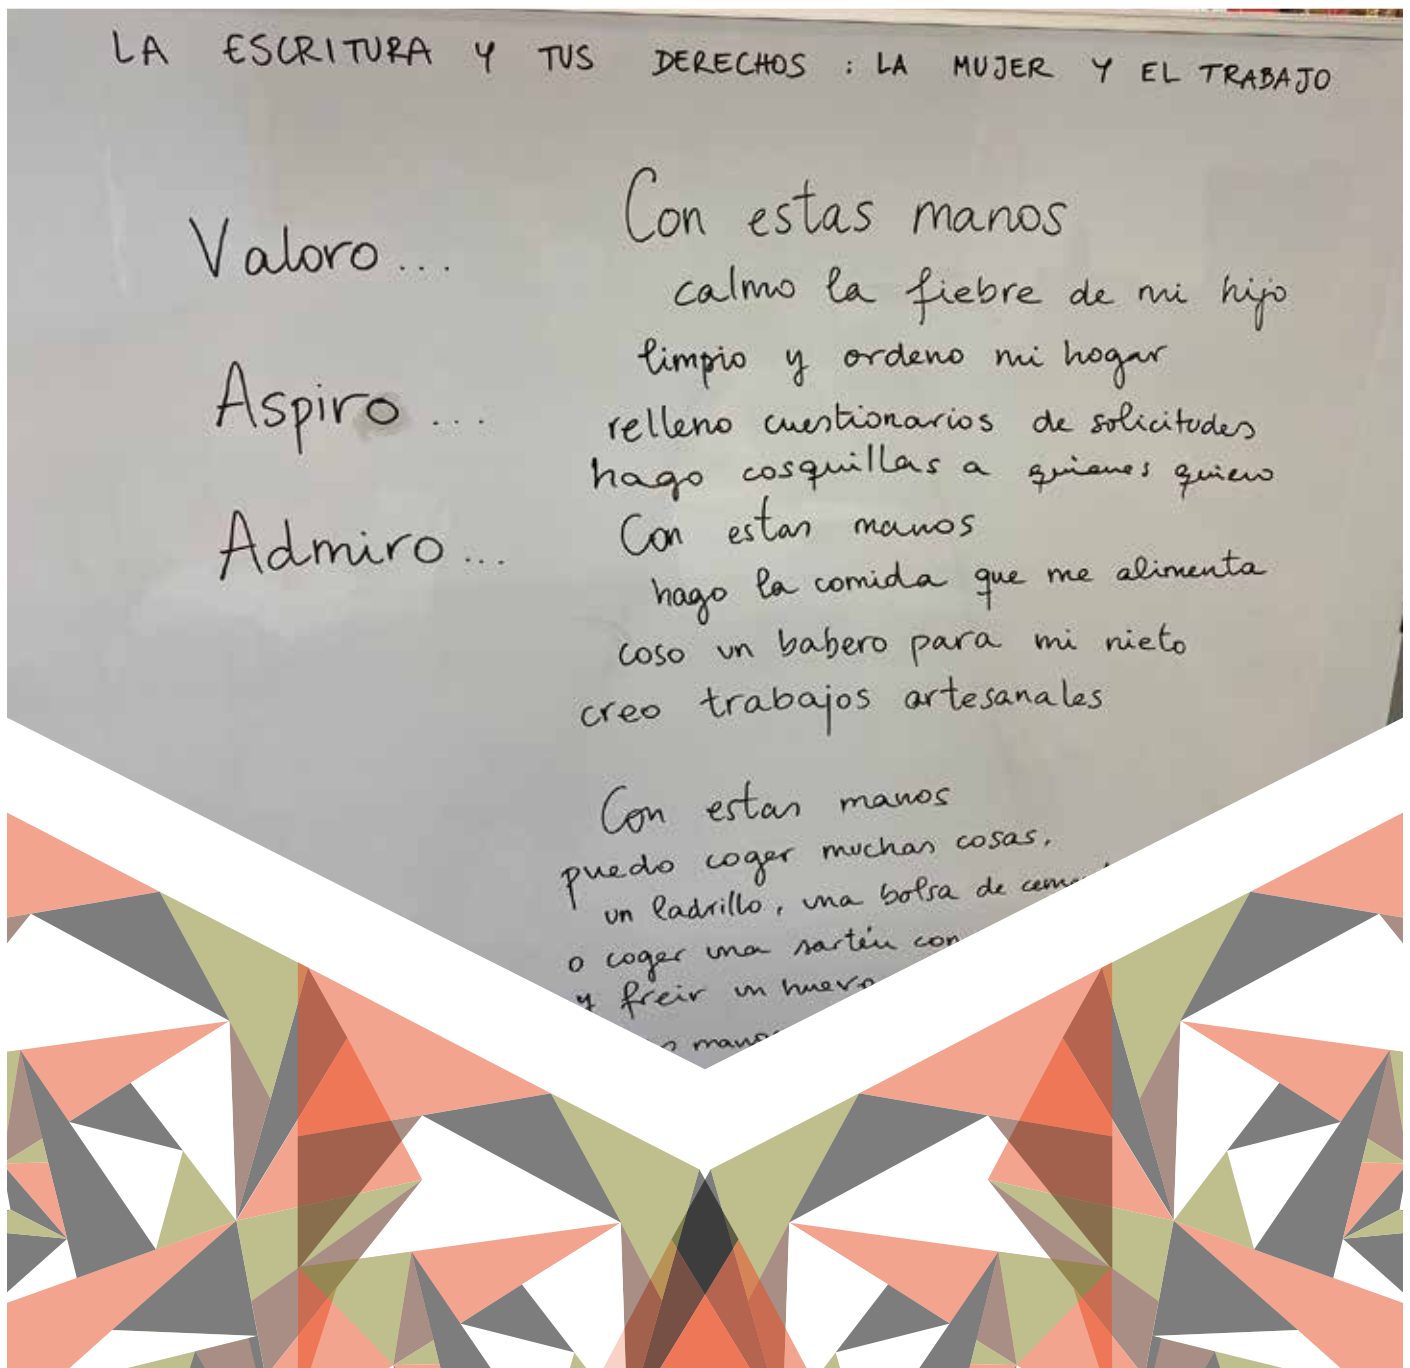 LA ESCRITURA Y TUS DERECHOS : LA MUJER Y EL TRABAJO
Valoro...
Aspiro...
Admiro...
Con estas manos
calmo la fiebre de mi hijo
limpio y ordeno mi hogar
relleno cuestionarios de solicitudes
hago cosquillas a quienes quiero
Con estas manos
hago la comida que me alimenta
coso un babero para mi nieto
creo trabajos artesanales
Con estas manos
puedo coger muchas cosas,
un ladrillo, una bolsa de
o coger una sartén con
y freir un huevo